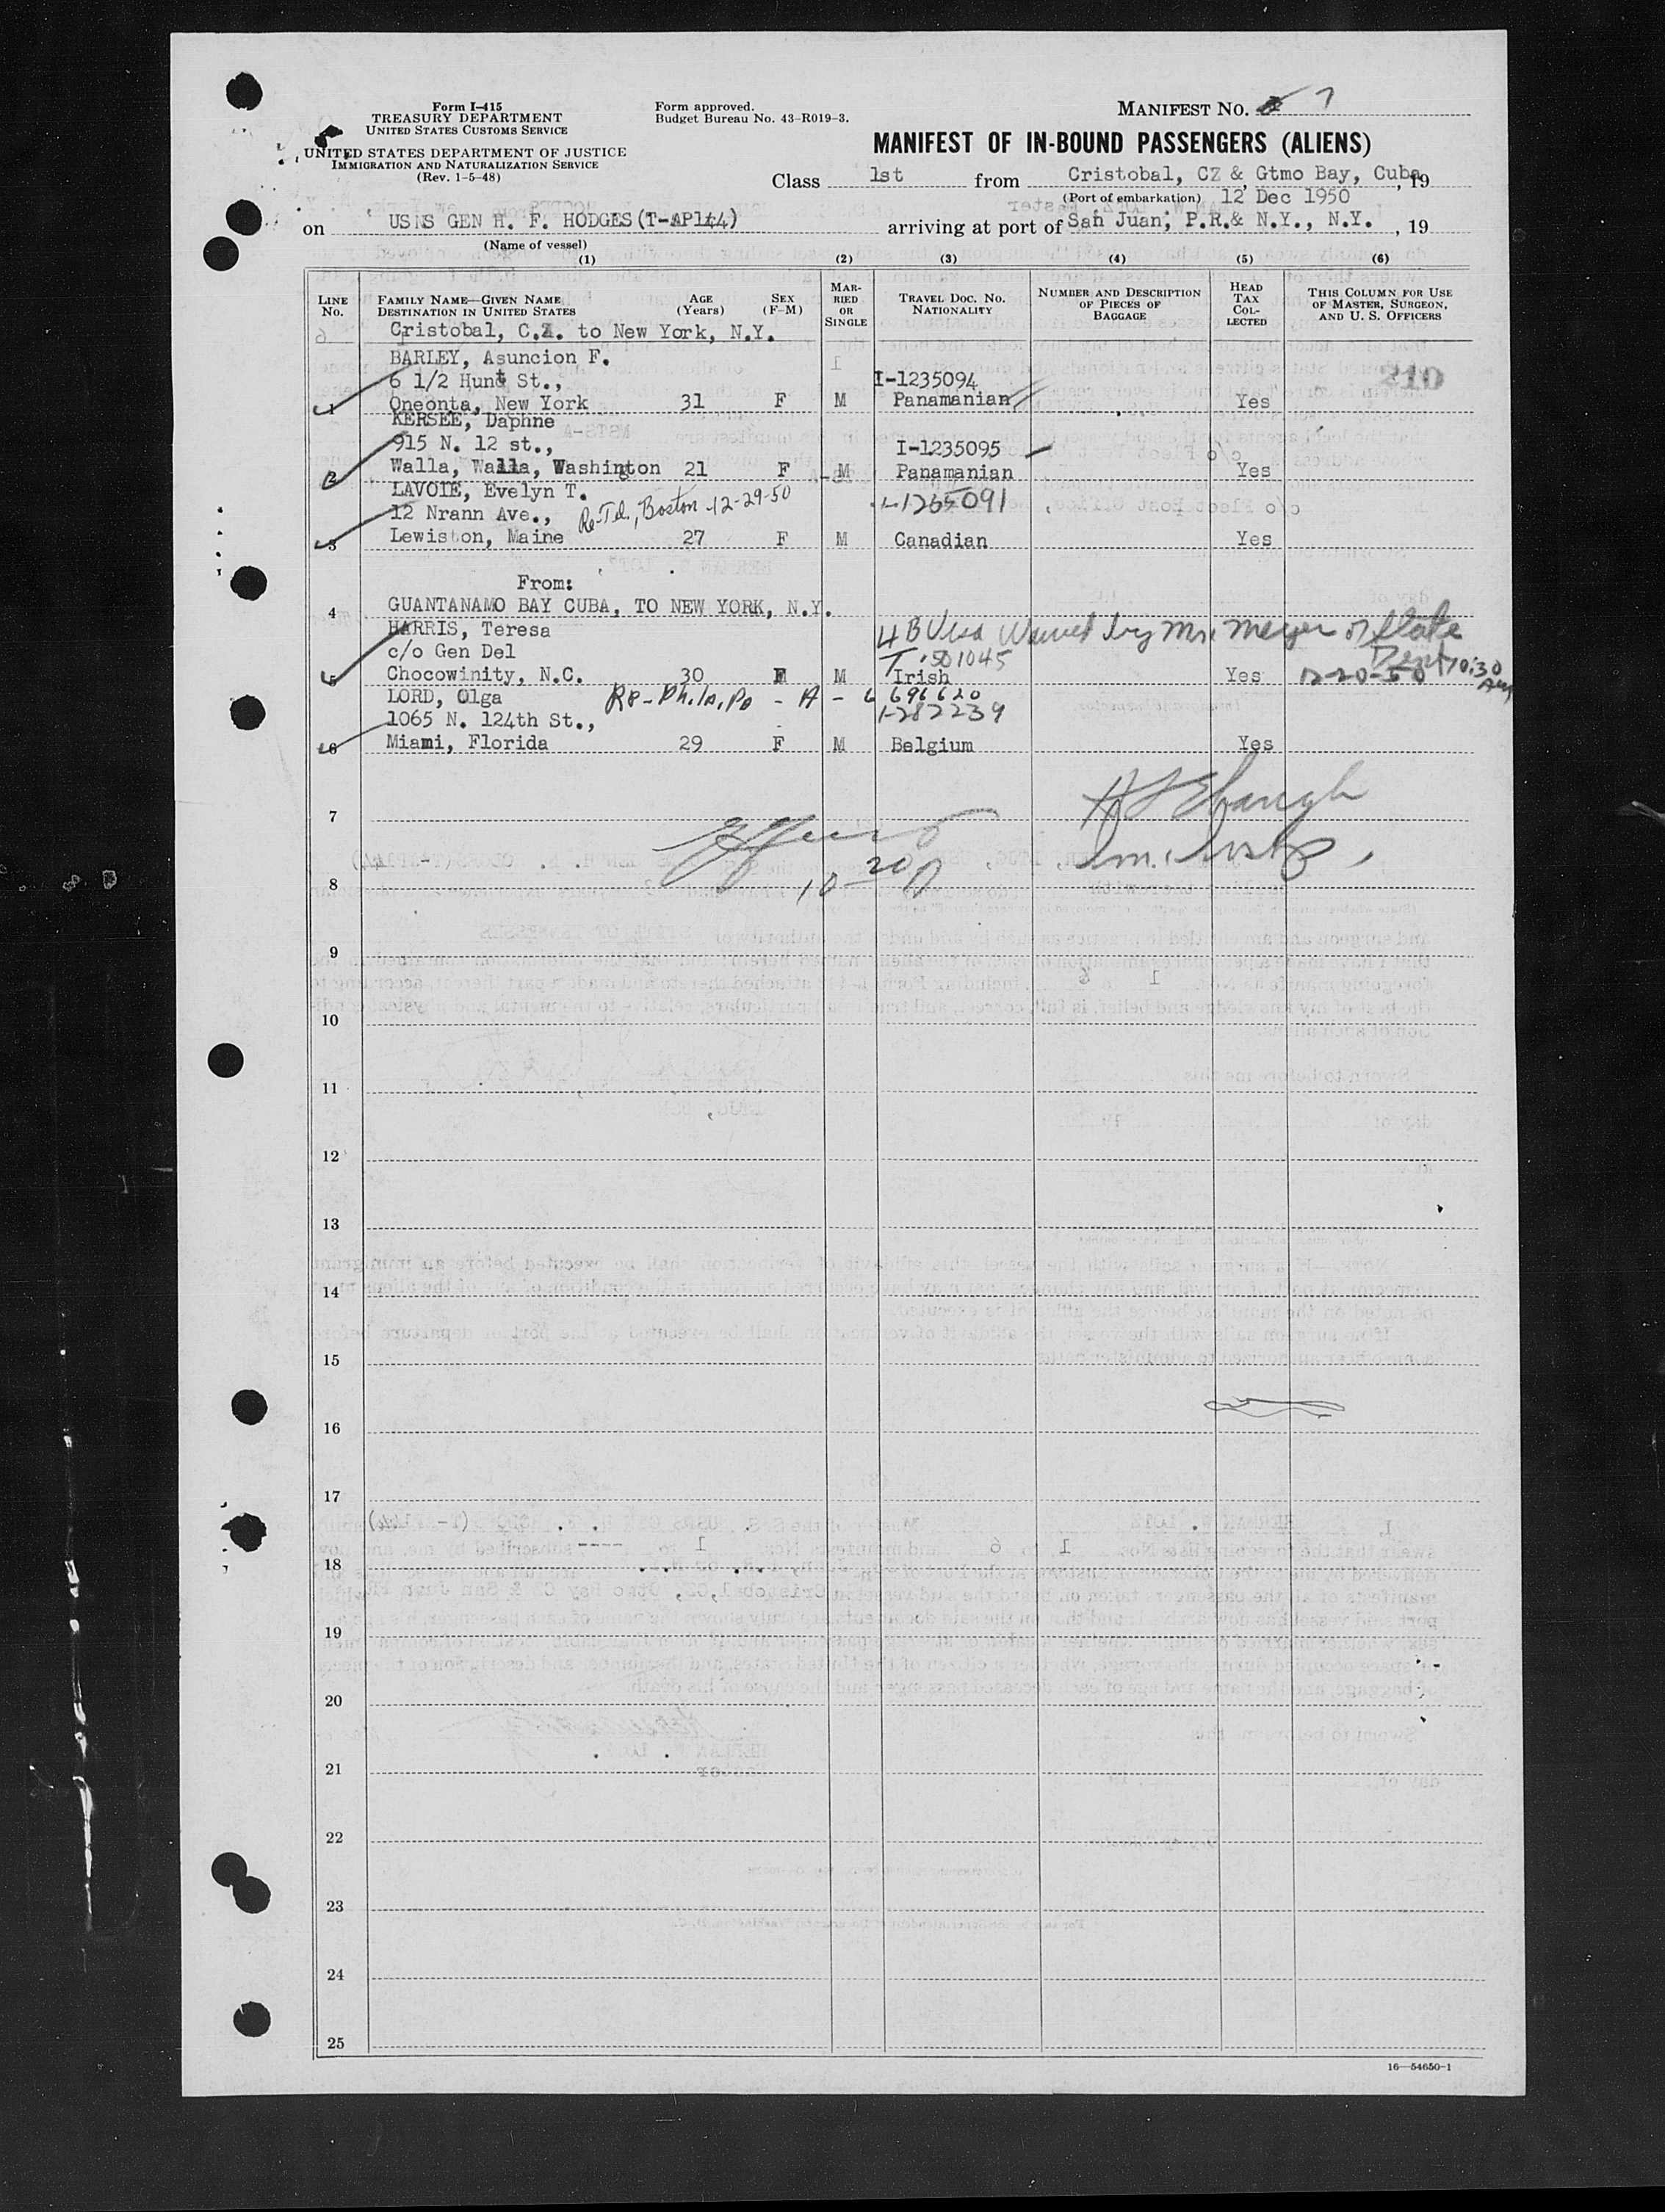 Form I-415
TREASURY DEPARTMENT
UNITED STATES CUSTOMS SERVICE
UNITED STATES DEPARTMENT OF JUSTICE
IMMIGRATION AND NATURALIZATION SERVICE
(Rev. 1-5-48)
Form approved.
Budget Bureau No. 43-R019-3.
MANIFEST NO. 7
MANIFEST OF IN-BOUND PASSENGERS (ALIENS)
Class 1st from Cristobal, CZ & Gtmo Bay, Cuba, 19
(Port of embarkation) 12 Dec 1950
on USNS GEN H. F. HODGES (T-AP144) arriving at port of San Juan, P.R.& N.Y., N.Y. , 19
(Name of vessel)
(1) (2) (3) (4) (5) (6)
LINE No. FAMILY NAME—GIVEN NAME DESTINATION IN UNITED STATES AGE (Years) SEX (F-M) MARRIED OR SINGLE TRAVEL DOC. NO. NATIONALITY NUMBER AND DESCRIPTION OF PIECES OF BAGGAGE HEAD TAX COLLECTED THIS COLUMN FOR USE OF MASTER, SURGEON, AND U. S. OFFICERS
Cristobal, C.Z. to New York, N.Y.
BARLEY, Asuncion F.
6 1/2 Hunt St., I-1235094 210
1 Oneonta, New York 31 F M Panamanian Yes
KERSEE, Daphne
915 N. 12 st., I-1235095
2 Walla, Walla, Washington 21 F M Panamanian Yes
LAVOIE, Evelyn T.
12 Nrann Ave., Re-Tel, Boston 12-29-50 I-1235091
3 Lewiston, Maine 27 F M Canadian Yes
From:
4 GUANTANAMO BAY CUBA, TO NEW YORK, N.Y.
HARRIS, Teresa 4 B Visa Waived by Mr. Meyer of State
c/o Gen Del T-501045 Dept 10:30
5 Chocowinity, N.C. 30 F M Irish Yes 12-20-50 AM
LORD, Olga Re-Phila, Pa - A - 6 696620
1065 N. 124th St., I-282239
6 Miami, Florida 29 F M Belgium Yes
7
8
9
10
11
12
13
14
15
16
17
18
19
20
21
22
23
24
25
16—54650-1